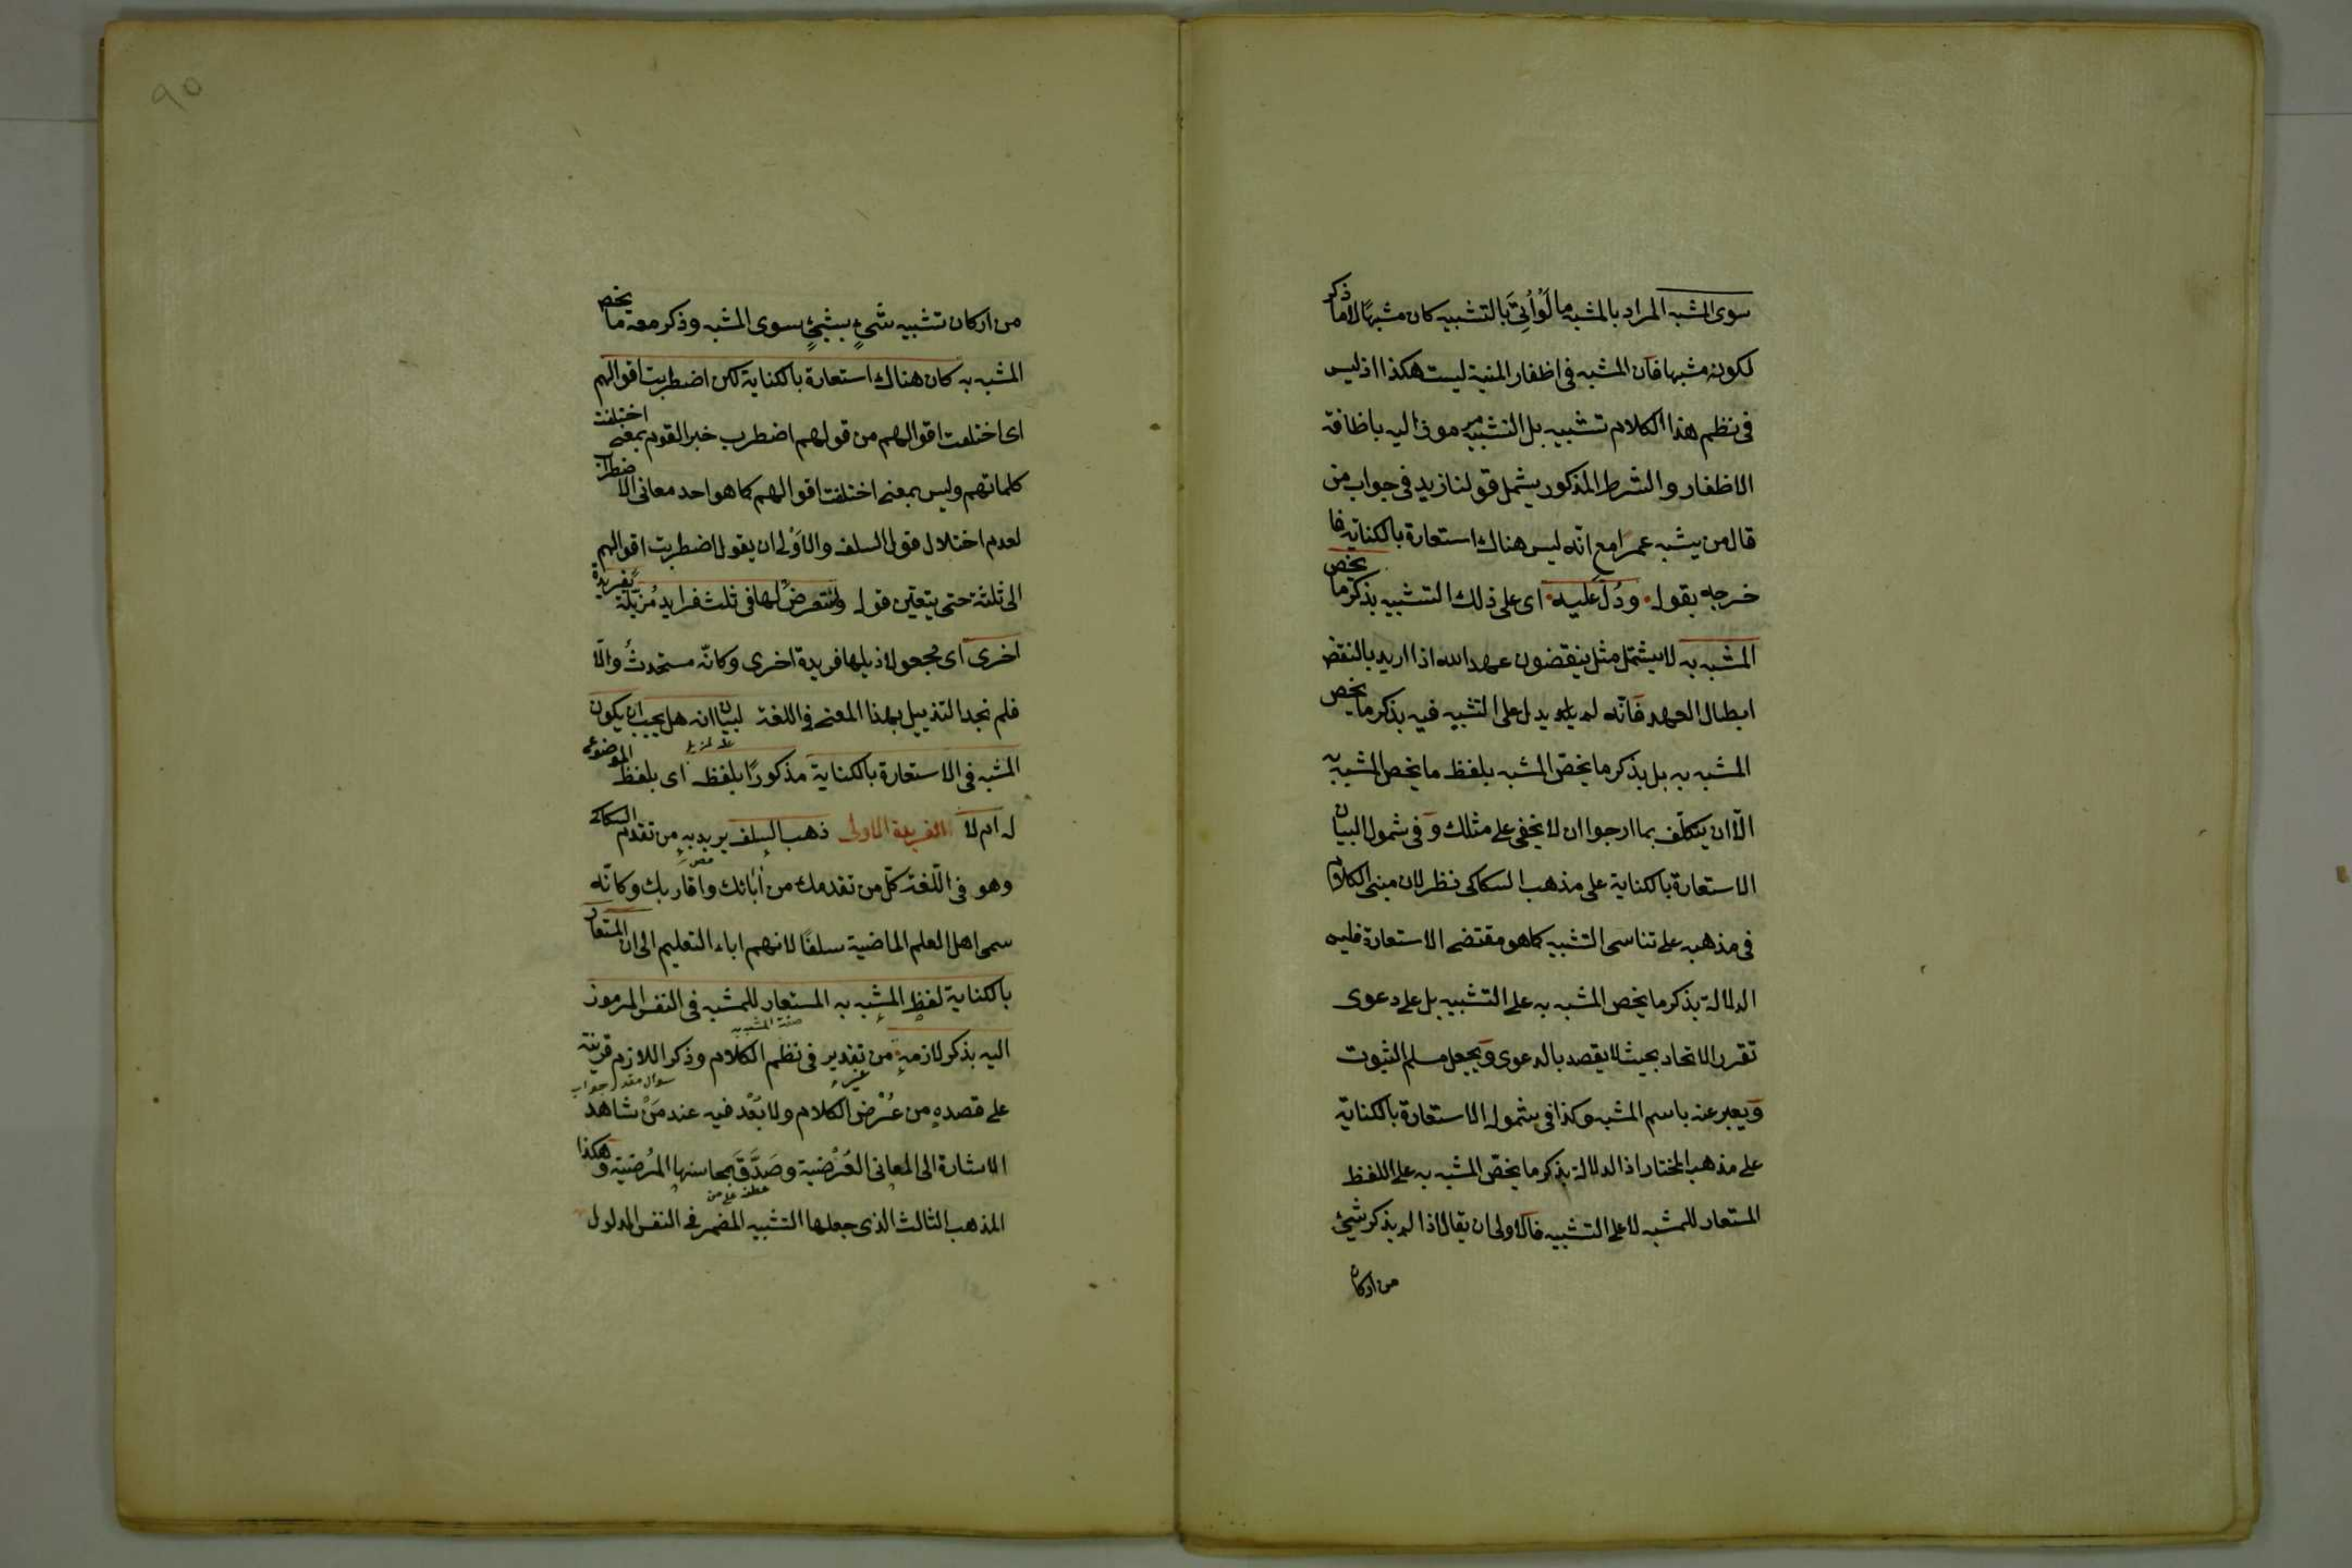 سوى المشبه المراد بالمشبه ما لو اُتِىَ بالتشبيه كان مشبهًا لا ما ذكر
لكونه مشبها فان المشبه فى اظفار المنية ليست هكذا اذ ليس
فى نظم هذا الكلام تشبيه بل التشبيه مرموز اليه باظافة
الاظفار والشرط المذكور يشمل قولنا زيد فى جواب من
قال من يشبه عمرا مع انه ليس هناك استعارة بالكناية فا
خرجه بقوله ودُلّ عليه اى على ذلك التشبيه بذكر ما يخص
المشبه به لا يشتمل مثل ينقضون عهد الله اذا اريد بالنقض
ابطال العهد فانّه لم يدل على التشبيه فيه بذكر ما يخص
المشبه به بل بذكر ما يخصّ المشبه بلفظ ما يخص المشبه به
الّا ان يتكلّف بما ارجوا ان لا يخفى على مثلك وفى شمول البيان
الاستعارة بالكناية على مذهب السكاكى نظر لان مبنى الكلام
فى مذهبه على تناسى التشبيه كما هو مقتضى الاستعارة فليس
الدلالة بذكر ما يخص المشبه به على التشبيه بل على دعوى
تقرر الاتحاد بحيث لا يقصد بالدعوى ويجعل مسلم الثبوت
ويعبر عنه باسم المشبه وكذا فى شموله الاستعارة بالكناية
على مذهب المختار اذ الدلالة بذكر ما يخصّ المشبه به على اللفظ
المستعار للمشبه لا على التشبيه فالاولى ان يقال اذا لم يذكر شئ
من اركان
٩٥
من اركان تشبيه شىءٍ بشئٍ سوى المشبه وذكر معه ما يخص
المشبه به كان هناك استعارة بالكناية لكن اضطربت اقوالهم
اى اختلفت اقوالهم من قولهم اضطرب خبر القوم بمعنى اختلفت
كلماتهم وليس بمعنى اختلفت اقوالهم كما هو احد معانى الاضطراب
لعدم اختلال قول السلف والاَوْلى ان يقول اضطربت اقوالهم
الى ثلثة حتى يتعيّن قوله ولنتعرض لها فى ثلث فرايد مُزيّلة بفريدة
اخرى اى مجعولا ذيلها فريدة اخرى وكانّه مستحدثٌ والّا
فلم نجد التذييل بهذا المعنى فى اللغة لبيان انه هل يجب ان يكون
المشبه فى الاستعارة بالكناية مذكورًا بلفظه اى بلفظ الموضوع
له ام لا الفريدة الاولى ذهب السلف يريد به من تقدم السكاكى
وهو فى اللّغة كلّ من تقدمك من اَبائك واقاربك وكانّه
سمى اهل العلم الماضية سلفًا لانهم اباء التعليم الى ان المستعار
بالكناية لفظ المشبه به المستعار للمشبه فى النفس المرموز
صفة المشبه به
اليه بذكر لازمه من تقدير فى نظم الكلام وذكر اللازم قرينة
سوال مقدر جواب
على قصده من عُرْض الكلام ولا بُعْد فيه عند مَنْ شاهد
الاشارة الى المعانى العُرْضية وصَدَّقَ بمحاسنها المرُضية وهكذا
عطف على من
المذهب الثالث الذى جعلها التشبيه المضمر فى النفس المدلول